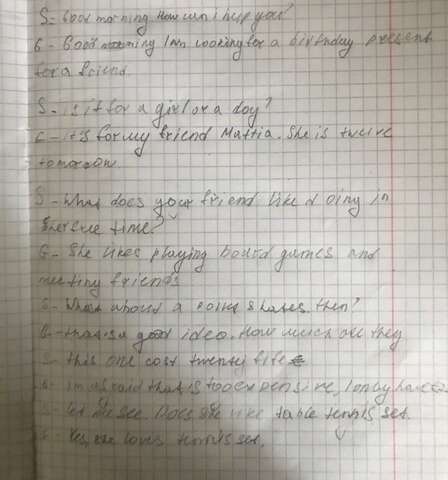 S - Good morning How can i help you?
G - Good morning I am looking for a birthday present
for a friend.
S - is it for a girl or a doy?
G - it's for my friend Mattia. She is twelve
tomorrow
S - What does your friend like doing in
time?
G - She likes playing board games and
meeting friends
S - What about a skates then?
G - that is a good idea. How much are they
S - this one cost twenty
G - I'm afraid that is too expensive, I only have
S - let me see. Does she like table tennis set.
G - Yes, she loves tennis set.